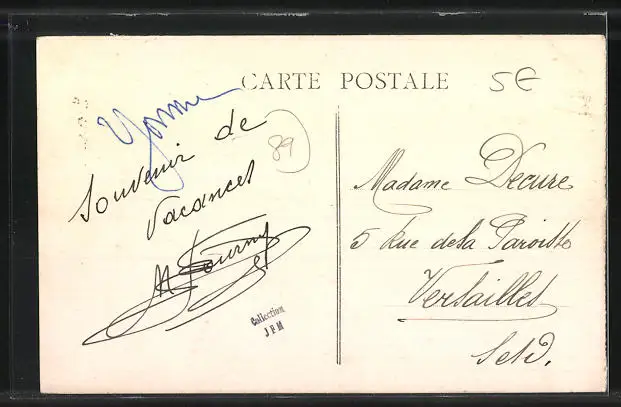 CARTE POSTALE
5€
Yonne
89
Souvenir de
Vacances
Collection
JFM
Madame Decure
5 Rue de la Paroisse
Versailles
S et O.